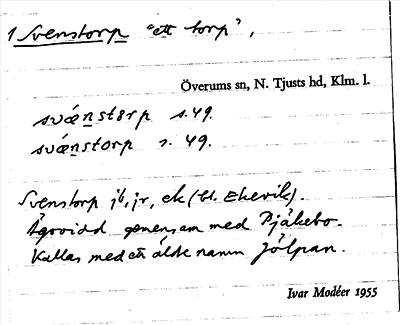 1 Svenstorp "ett torp",
Överums sn, N. Tjusts hd, Klm. l.
svǽnstɜrp s. 49.
svǽnstorp s. 49.
Svenstorp jb, jr, ek (bl. Ekevik).
Ägovidd gemensam med Pjäkebo.
Kallas med ett äldre namn Jölpan.
Ivar Modéer 1955